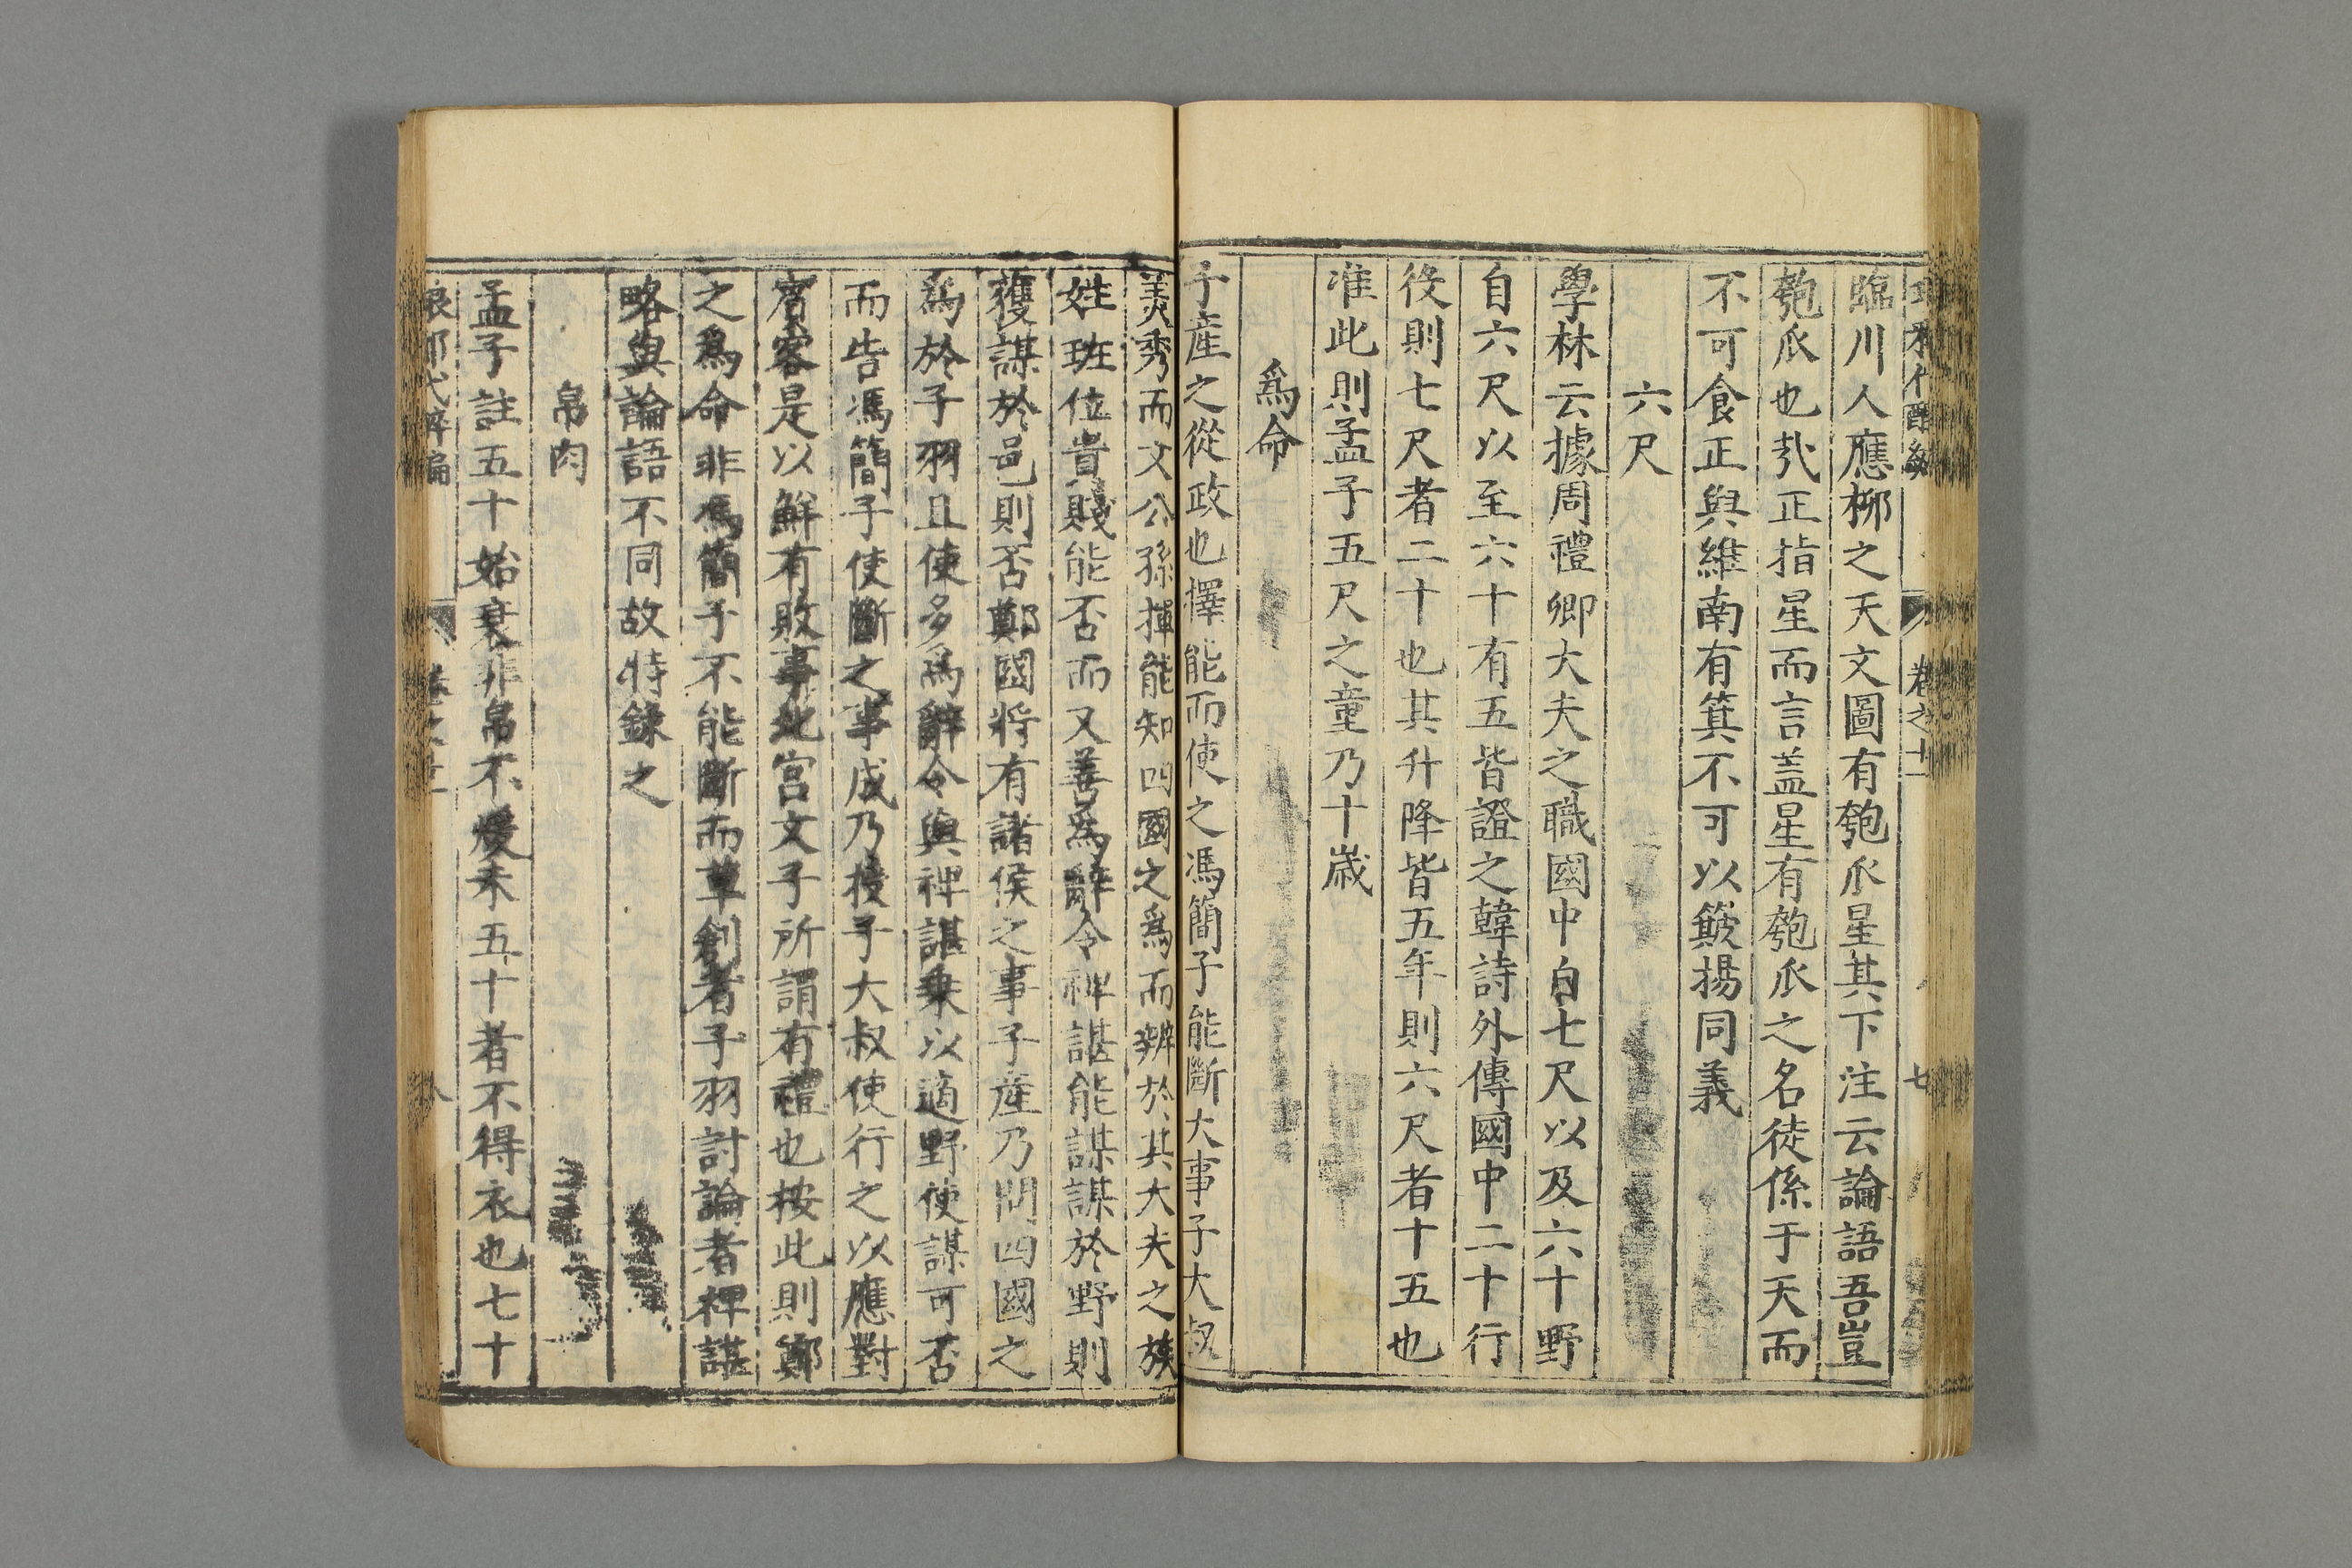 琅琊代醉編 卷之十一 七
臨川人應柳之天文圖有匏瓜星其下注云論語吾豈
匏瓜也㢤正指星而言盖星有匏瓜之名徒係于天而
不可食正與維南有箕不可以簸揚同義
六尺
學林云據周禮卿大夫之職國中自七尺以及六十野
自六尺以至六十有五皆證之韓詩外傳國中二十行
役則七尺者二十也其升降皆五年則六尺者十五也
准此則孟子五尺之童乃十歲
爲命
子産之從政也擇能而使之馮簡子能斷大事子大叔
美秀而文公孫揮能知四國之爲而辨於其大夫之族
姓班位貴賤能否而又善爲辭令裨諶能謀謀於野則
獲謀於邑則否鄭國將有諸侯之事子産乃問四國之
爲於子羽且使多爲辭令與裨諶乗以適野使謀可否
而告馮簡子使斷之事成乃授子大叔使行之以應對
賔客是以鮮有敗事北宮文子所謂有禮也按此則鄭
之爲命非馮簡子不能斷而草創者子羽討論者裨諶
略與論語不同故特錄之
帛肉
孟子註五十始衰非帛不煖未五十者不得衣也七十
琅琊代醉編 卷之十一 八